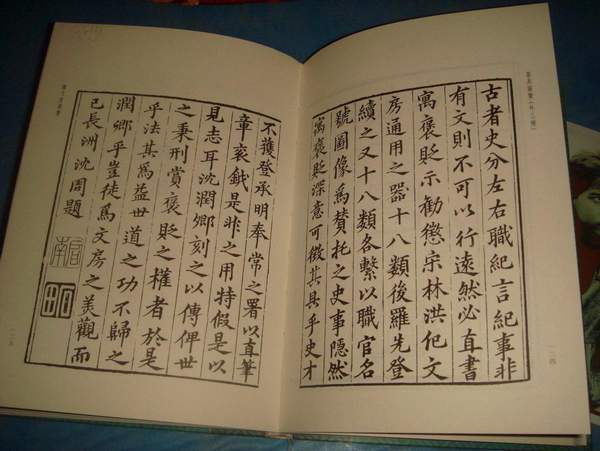 古者史分左右職紀言紀事非
有文則不可以行遠然必直書
寓褒貶示勸懲宋林洪文
房通用之器十八類後羅先登
續之又十八類各繫以職官名
號圖像爲贊托之史事隱然
寓褒貶深意可徵其具乎史才
一二四
不獲登承明奉常之署以直筆
章衮鉞是非之用特假是以
見志耳沈潤卿刻之以傳俾世
之秉刑賞褒貶之權者於是
乎法其爲益世道之功不歸之
潤卿乎豈徒爲文房之美觀而
已長洲沈周題
啟南
石田
一二五